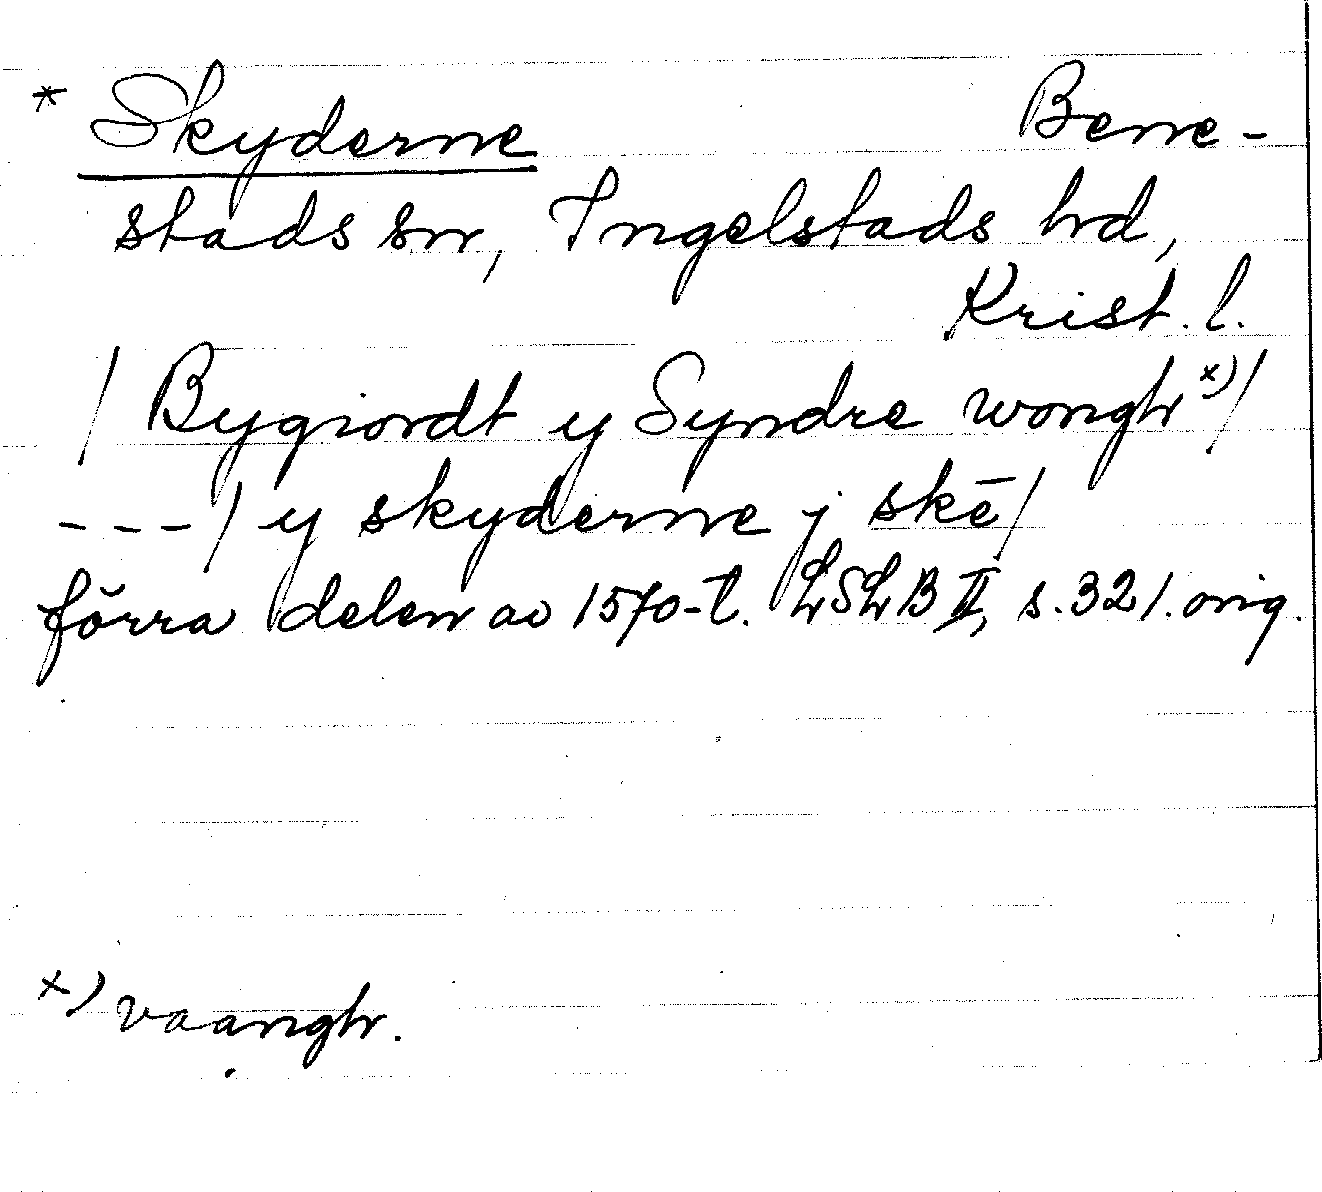 * Skyderne Benne-
stads sn, Ingelstads hd,
Krist. l.
/ Bygiordt y Syndre wongh x) /
--- / y skyderne j skē /
förra delen av 1570-t. LSLB II, s. 321. orig.
x) vaangh.